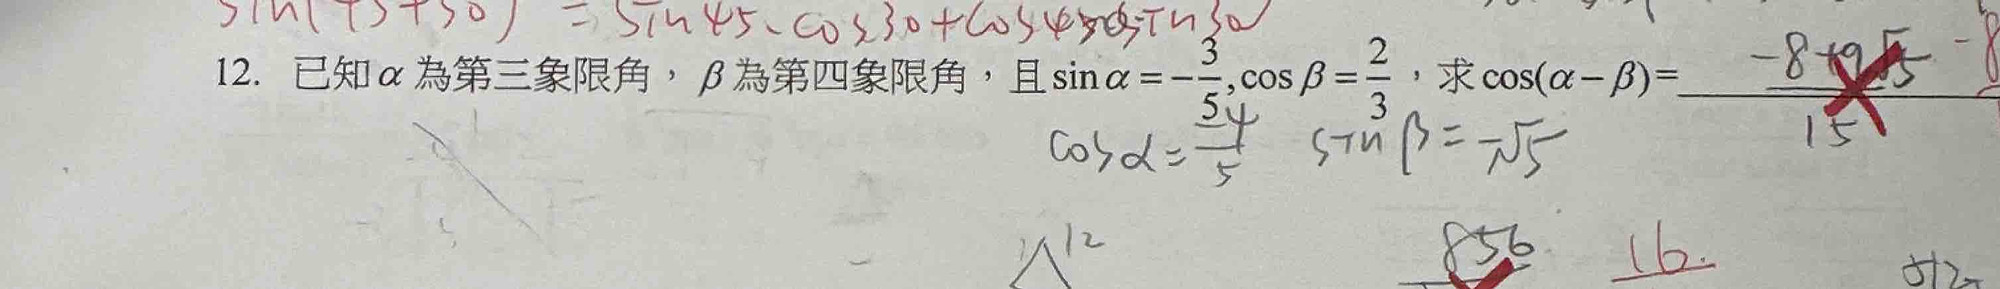 sin(45+30) = sin45·cos30+cos45·sin30
12. 已知α為第三象限角，β為第四象限角，且sinα=-3/5,cosβ=2/3，求cos(α-β)= -8+9√5/15 -8
cosα=-4/5 sinβ=-√5
12 856 16.